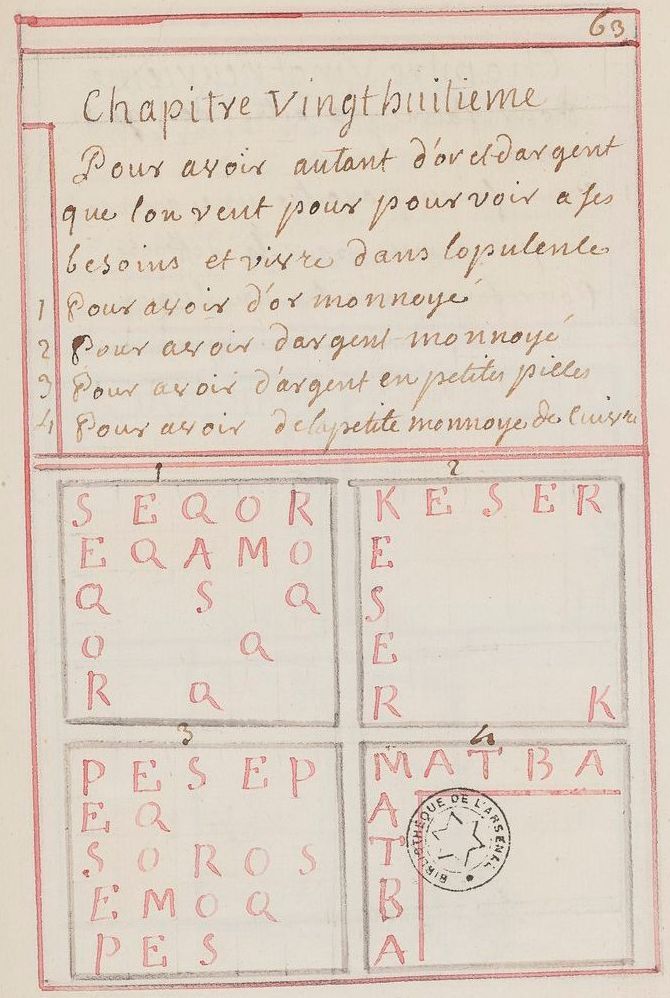 63
Chapitre Vingthuitieme
Pour avoir autant d'or et dargent
que lon veut pour pourvoir a ses
besoins et vivre dans lopulence
1 Pour avoir d'or monnoyé
2 Pour avoir dargent monnoyé
3 Pour avoir d'argent en petites pilles
4 Pour avoir de la petite monnoye de Cuivre
1
S E Q O R
E Q A M O
Q S Q
O Q
R Q
2
K E S E R
E
S
E
R K
3
P E S E P
E Q
S O R O S
E M O Q
P E S
4
M A T B A
A
T
B
A
BIBLIOTHÈQUE DE L'ARSENAL